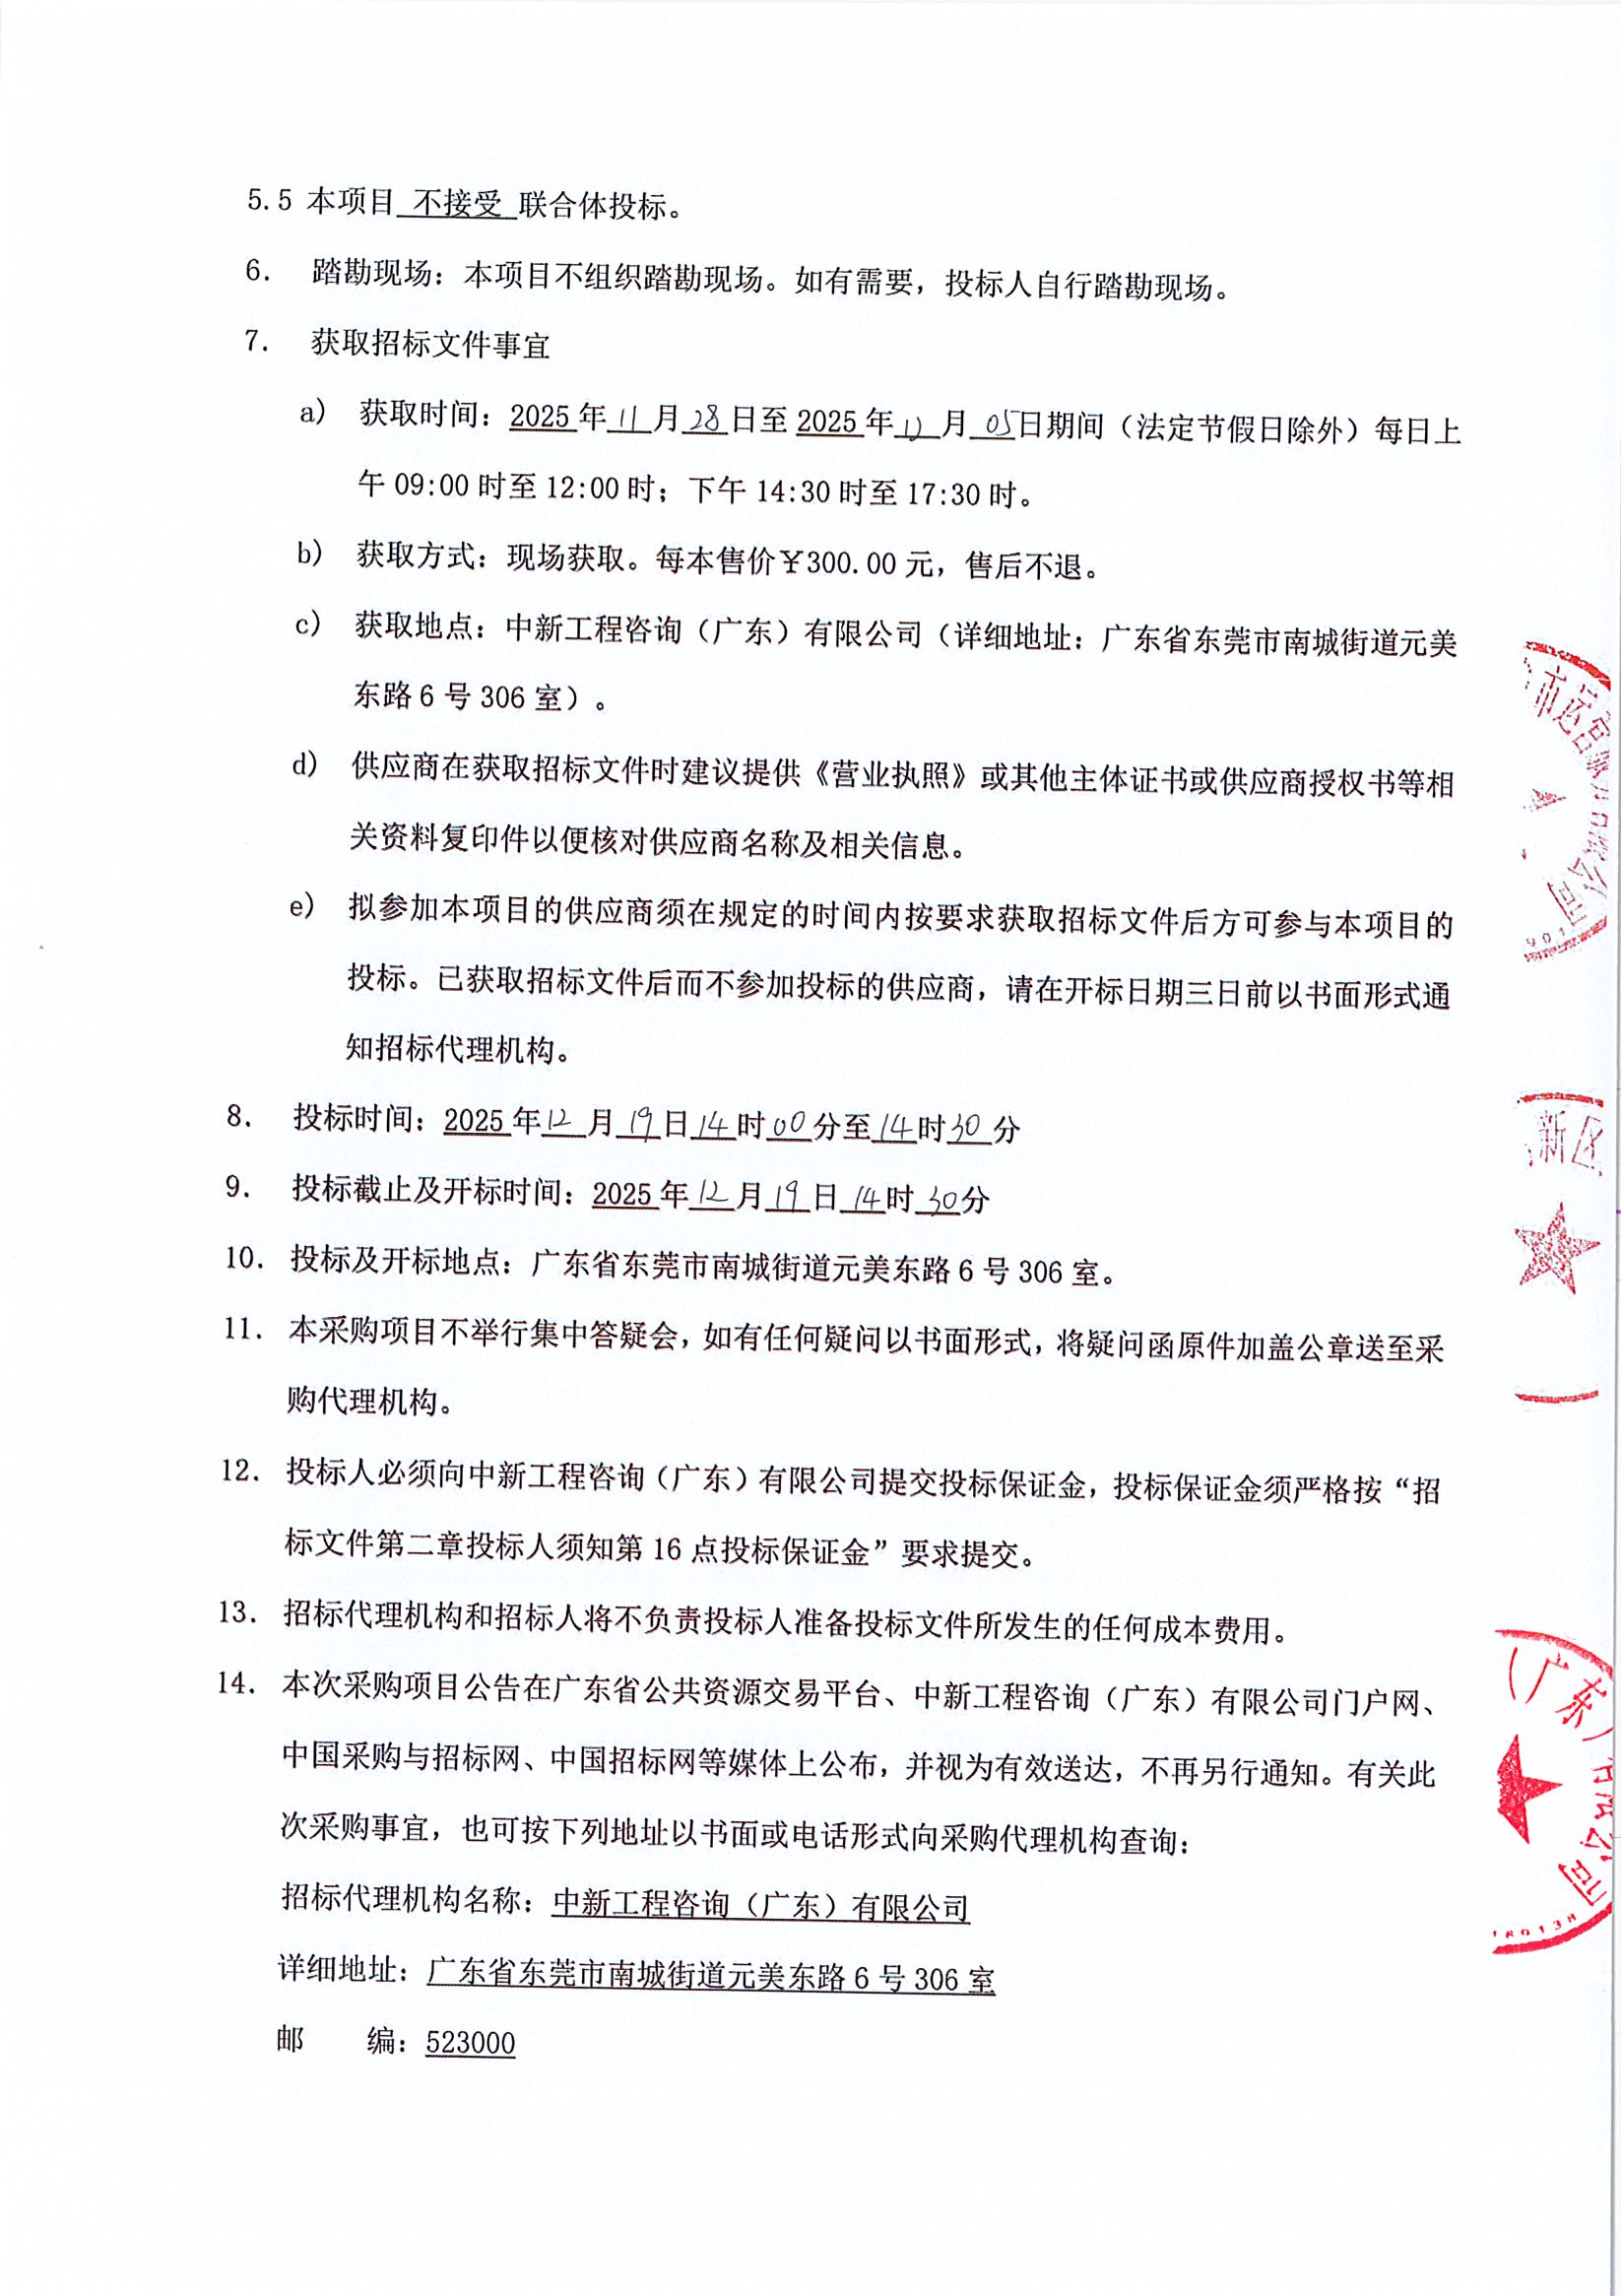 5.5 本项目 不接受 联合体投标。
6. 踏勘现场：本项目不组织踏勘现场。如有需要，投标人自行踏勘现场。
7. 获取招标文件事宜
a) 获取时间：2025 年 11 月 28 日至 2025 年 12 月 05 日期间（法定节假日除外）每日上
午 09:00 时至 12:00 时；下午 14:30 时至 17:30 时。
b) 获取方式：现场获取。每本售价￥300.00 元，售后不退。
c) 获取地点：中新工程咨询（广东）有限公司（详细地址：广东省东莞市南城街道元美
东路 6 号 306 室）。
d) 供应商在获取招标文件时建议提供《营业执照》或其他主体证书或供应商授权书等相
关资料复印件以便核对供应商名称及相关信息。
e) 拟参加本项目的供应商须在规定的时间内按要求获取招标文件后方可参与本项目的
投标。已获取招标文件后而不参加投标的供应商，请在开标日期三日前以书面形式通
知招标代理机构。
8. 投标时间：2025 年 12 月 19 日 14 时 00 分至 14 时 30 分
9. 投标截止及开标时间：2025 年 12 月 19 日 14 时 30 分
10. 投标及开标地点：广东省东莞市南城街道元美东路 6 号 306 室。
11. 本采购项目不举行集中答疑会，如有任何疑问以书面形式，将疑问函原件加盖公章送至采
购代理机构。
12. 投标人必须向中新工程咨询（广东）有限公司提交投标保证金，投标保证金须严格按“招
标文件第二章投标人须知第 16 点投标保证金”要求提交。
13. 招标代理机构和招标人将不负责投标人准备投标文件所发生的任何成本费用。
14. 本次采购项目公告在广东省公共资源交易平台、中新工程咨询（广东）有限公司门户网、
中国采购与招标网、中国招标网等媒体上公布，并视为有效送达，不再另行通知。有关此
次采购事宜，也可按下列地址以书面或电话形式向采购代理机构查询：
招标代理机构名称：中新工程咨询（广东）有限公司
详细地址：广东省东莞市南城街道元美东路 6 号 306 室
邮 编：523000
新区
（广东）
公司